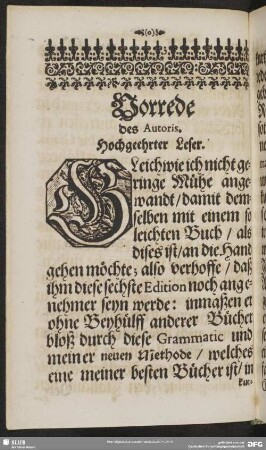 Vorrede
des Autoris,
Hochgeehrter Leser.
GLeichwie ich nicht ge-
ringe Mühe ange-
wandt / damit dem-
selben mit einem so
leichten Buch / als
dises ist / an die Hand
gehen möchte; also verhoffe / daß
ihm diese sechste Edition noch ange-
nehmer seyn werde: inmaßen er
ohne Beyhülff anderer Bücher
bloß durch diese Grammatic und
meiner neuen Methode / welches
eine meiner besten Bücher ist / in
kur-
SLUB
DFG